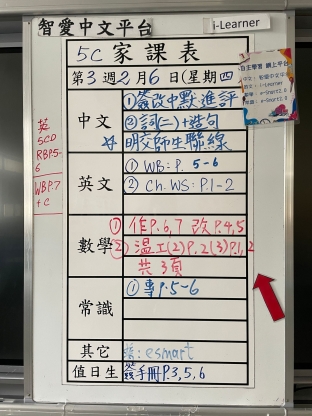 智愛中文平台
i-Learner
5C 家課表
第3週2月6日(星期四
自主學習 網上平台
中文 ①簽改中默,進評
②詞(二)+造句
明交師生聯線
英
5CD
RBP.5-
6
WBP.7
+C
英文 ① WB: P. 5-6
② Ch. WS: P.1-2
數學 ① 作P.6,7 改P.4,5
② 溫工(2)P.2(3)P.1,2
共3頁
常識 ① 專P.5-6
其它 : esmart
值日生 簽手冊P.3,5,6